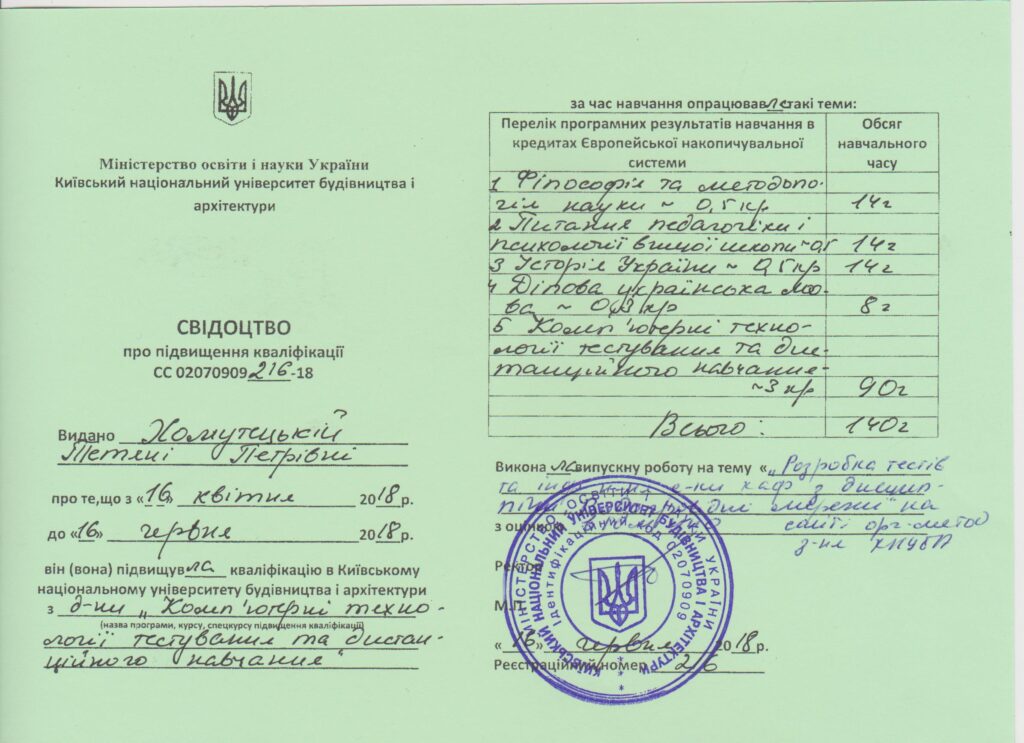 Міністерство освіти і науки України
Київський національний університет будівництва і
архітектури
СВІДОЦТВО
про підвищення кваліфікації
СС 02070909 216 -18
Видано Хомутецькій
Тетяні Петрівні
про те,що з «16» квітня 2018 р.
до «16» червня 2018 р.
він (вона) підвищувла кваліфікацію в Київському
національному університету будівництва і архітектури
з д-ни „Комп'ютерні техно-
(назва програми, курсу, спецкурсу підвищення кваліфікації)
логії тестування та дистан-
ційного навчання"
за час навчання опрацювавла такі теми:
Перелік програмних результатів навчання в
кредитах Європейської накопичувальної
системи
Обсяг
навчального
часу
1 Філософія та методоло-
гія науки ~ 0,5 кр 14г
2 Питання педагогіки і
психології вищої школи ~ 0,5 14г
3 Історія України ~ 0,5 кр 14г
4 Ділова українська мо-
ва ~ 0,3 кр 8г
5 Комп'ютерні техно-
логії тестування та дис-
танційного навчання-
~3 кр 90г
Всього: 140г
Викона ла випускну роботу на тему «„Розробка тестів
та д-ни каф з дисцип-
мережі" на
з оцінкою сайті орг-метод
Ректор
М.П.
«16» червня 2018 р.
Реєстраційний номер
МІНІСТЕРСТВО ОСВІТИ І НАУКИ УКРАЇНИ
КИЇВСЬКИЙ НАЦІОНАЛЬНИЙ УНІВЕРСИТЕТ БУДІВНИЦТВА І АРХІТЕКТУРИ
Ідентифікаційний код 02070909